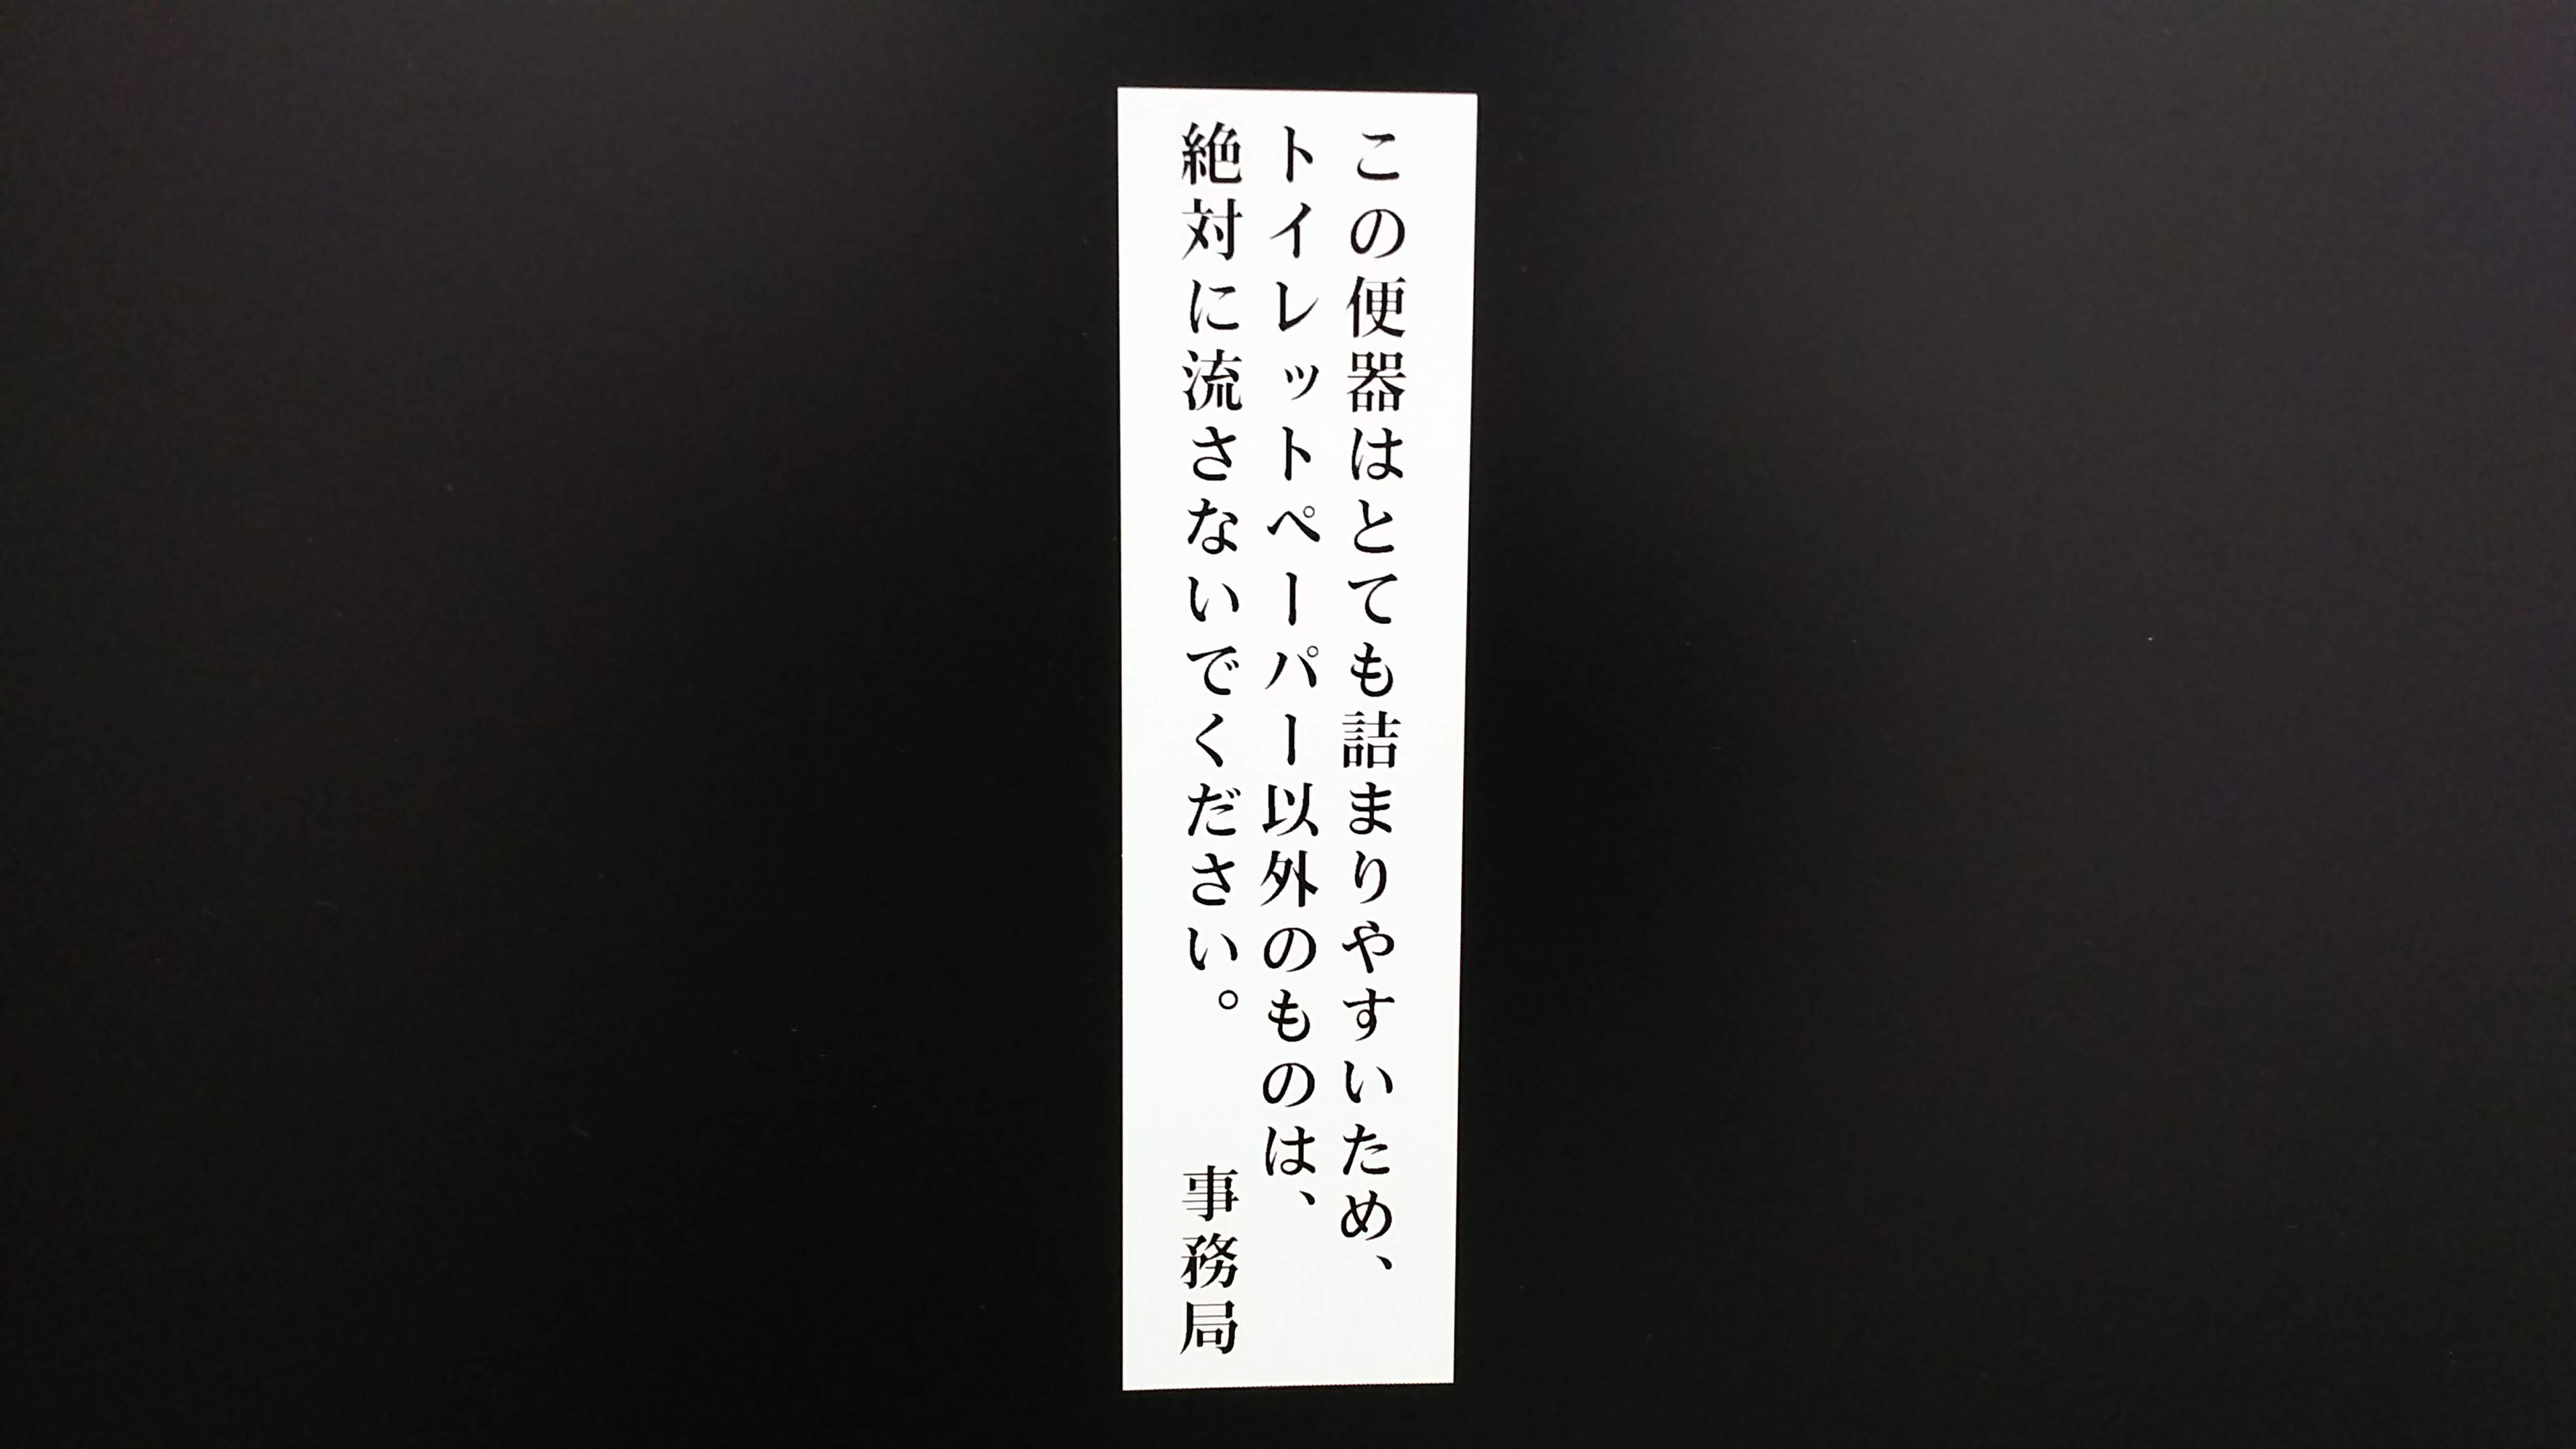 この便器はとても詰まりやすいため、
トイレットペーパー以外のものは、
絶対に流さないでください。　事務局